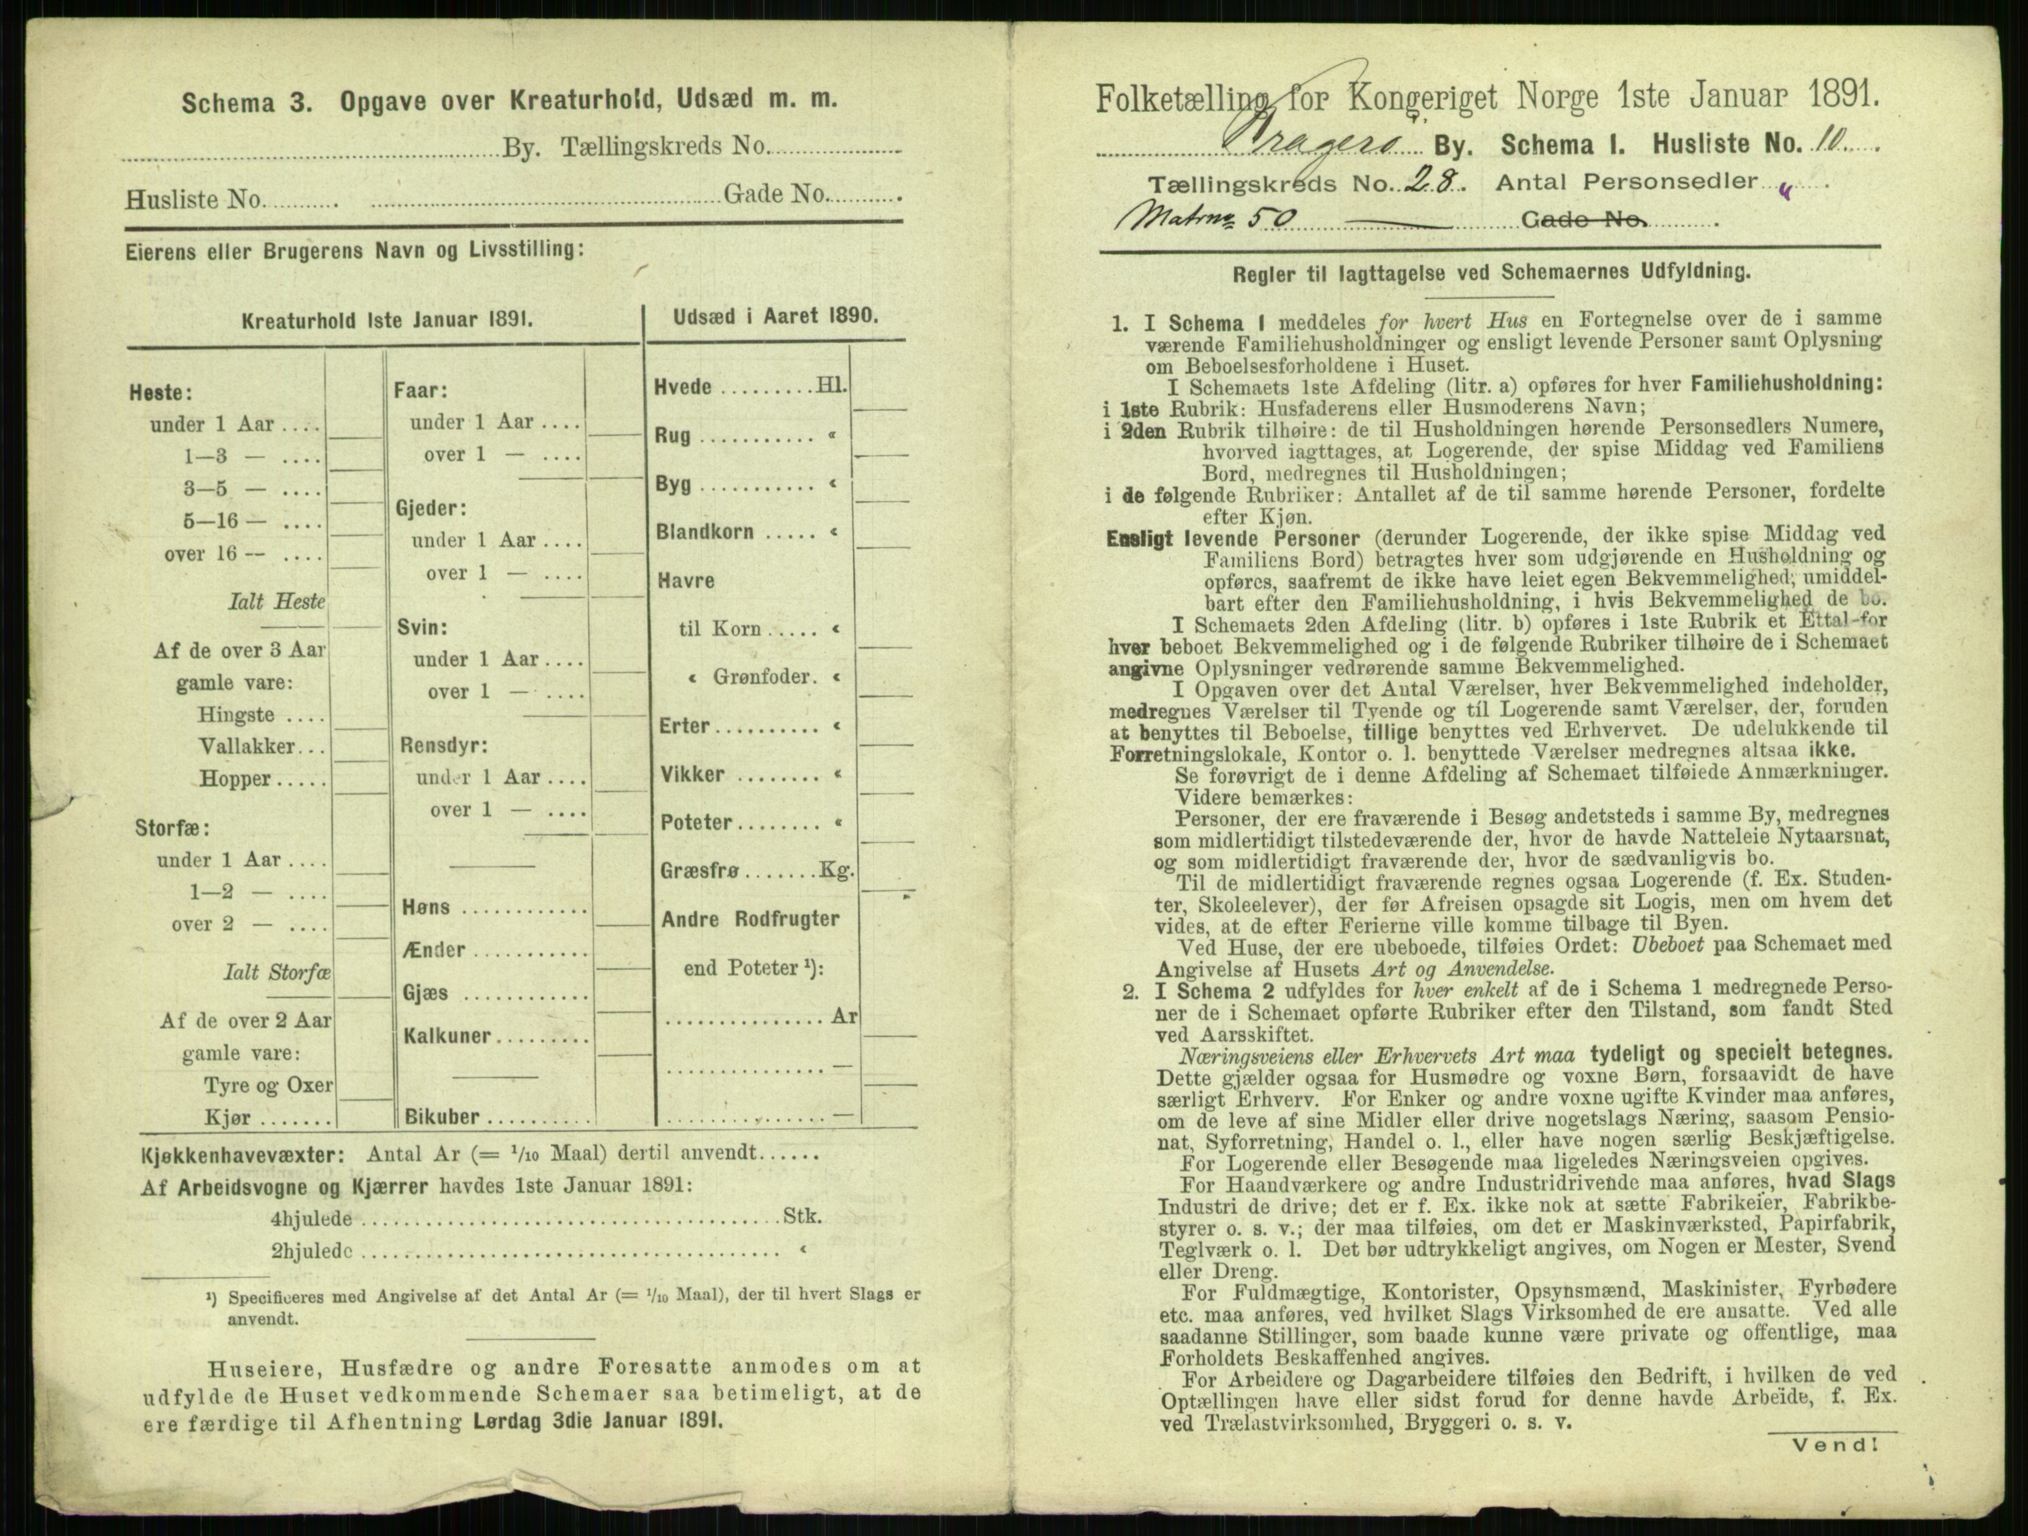 Schema 3. Opgave over Kreaturhold, Udsæd m. m.
By. Tællingskreds No.
Husliste No. Gade No.
Eierens eller Brugerens Navn og Livsstilling:
Kreaturhold 1ste Januar 1891.
Heste:
under 1 Aar ....
1—3 — ....
3—5 — ....
5—16 — ....
over 16 — ....
Ialt Heste
Af de over 3 Aar
gamle vare:
Hingste ....
Vallakker...
Hopper.....
Storfæ:
under 1 Aar ....
1—2 — ....
over 2 — ....
Ialt Storfæ
Af de over 2 Aar
gamle vare:
Tyre og Oxer
Kjør.......
Faar:
under 1 Aar ....
over 1 — ....
Gjeder:
under 1 Aar ....
over 1 — ....
Svin:
under 1 Aar ....
over 1 — ....
Rensdyr:
under 1 Aar ....
over 1 — ....
Høns ............
Ænder ...........
Gjæs ............
Kalkuner.........
Bikuber ..........
Udsæd i Aaret 1890.
Hvede .........Hl.
Rug ........... «
Byg ........... «
Blandkorn ..... «
Havre
til Korn..... «
« Grønfoder. «
Erter.......... «
Vikker ........ «
Poteter........ «
Græsfrø.......Kg.
Andre Rodfrugter
end Poteter ¹):
............... Ar
............... —
............... —
Kjøkkenhavevæxter: Antal Ar (= 1/10 Maal) dertil anvendt......
Af Arbeidsvogne og Kjærrer havdes 1ste Januar 1891:
4hjulede ........................................Stk.
2hjulede ........................................ «
¹) Specificeres med Angivelse af det Antal Ar (= 1/10 Maal), der til hvert Slags er
anvendt.
Huseiere, Husfædre og andre Foresatte anmodes om at
udfylde de Huset vedkommende Schemaer saa betimeligt, at de
ere færdige til Afhentning Lørdag 3die Januar 1891.
Folketælling for Kongeriget Norge 1ste Januar 1891.
Kragerø By. Schema 1. Husliste No. 10
Tællingskreds No. 28. Antal Personsedler „
Matrno 50 — Gade No.
Regler til Iagttagelse ved Schemaernes Udfyldning.
1. I Schema 1 meddeles for hvert Hus en Fortegnelse over de i samme
værende Familiehusholdninger og ensligt levende Personer samt Oplysning
om Beboelsesforholdene i Huset.
I Schemaets 1ste Afdeling (litr. a) opføres for hver Familiehusholdning:
i 1ste Rubrik: Husfaderens eller Husmoderens Navn;
i 2den Rubrik tilhøire: de til Husholdningen hørende Personsedlers Numere,
hvorved iagttages, at Logerende, der spise Middag ved Familiens
Bord, medregnes til Husholdningen;
i de følgende Rubriker: Antallet af de til samme hørende Personer, fordelte
efter Kjøn.
Ensligt levende Personer (derunder Logerende, der ikke spise Middag ved
Familiens Bord) betragtes hver som udgjørende en Husholdning og
opføres, saafremt de ikke have leiet egen Bekvemmelighed, umiddel-
bart efter den Familiehusholdning, i hvis Bekvemmelighed de bo.
I Schemaets 2den Afdeling (litr. b) opføres i 1ste Rubrik et Ettal for
hver beboet Bekvemmelighed og i de følgende Rubriker tilhøire de i Schemaet
angivne Oplysninger vedrørende samme Bekvemmelighed.
I Opgaven over det Antal Værelser, hver Bekvemmelighed indeholder,
medregnes Værelser til Tyende og til Logerende samt Værelser, der, foruden
at benyttes til Beboelse, tillige benyttes ved Erhvervet. De udelukkende til
Forretningslokale, Kontor o. l. benyttede Værelser medregnes altsaa ikke.
Se forøvrigt de i denne Afdeling af Schemaet tilføiede Anmærkninger.
Videre bemærkes:
Personer, der ere fraværende i Besøg andetsteds i samme By, medregnes
som midlertidigt tilstedeværende der, hvor de havde Natteleie Nytaarsnat,
og som midlertidigt fraværende der, hvor de sædvanligvis bo.
Til de midlertidigt fraværende regnes ogsaa Logerende (f. Ex. Studen-
ter, Skoleelever), der før Afreisen opsagde sit Logis, men om hvem det
vides, at de efter Ferierne ville komme tilbage til Byen.
Ved Huse, der ere ubeboede, tilføies Ordet: Ubeboet paa Schemaet med
Angivelse af Husets Art og Anvendelse.
2. I Schema 2 udfyldes for hver enkelt af de i Schema 1 medregnede Perso-
ner de i Schemaet opførte Rubriker efter den Tilstand, som fandt Sted
ved Aarsskiftet.
Næringsveiens eller Erhvervets Art maa tydeligt og specielt betegnes.
Dette gjælder ogsaa for Husmødre og voxne Børn, forsaavidt de have
særligt Erhverv. For Enker og andre voxne ugifte Kvinder maa anføres,
om de leve af sine Midler eller drive nogetslags Næring, saasom Pensio-
nat, Syforretning, Handel o. l., eller have nogen særlig Beskjæftigelse.
For Logerende eller Besøgende maa ligeledes Næringsveien opgives.
For Haandværkere og andre Industridrivende maa anføres, hvad Slags
Industri de drive; det er f. Ex. ikke nok at sætte Fabrikeier, Fabrikbe-
styrer o. s. v.; der maa tilføies, om det er Maskinværksted, Papirfabrik,
Teglværk o. l. Det bør udtrykkeligt angives, om Nogen er Mester, Svend
eller Dreng.
For Fuldmægtige, Kontorister, Opsynsmænd, Maskinister, Fyrbødere
etc. maa anføres, ved hvilket Slags Virksomhed de ere ansatte. Ved alle
saadanne Stillinger, som baade kunne være private og offentlige, maa
Forholdets Beskaffenhed angives.
For Arbeidere og Dagarbeidere tilføies den Bedrift, i hvilken de ved
Optællingen have eller sidst forud for denne havde Arbeide, f. Ex.
ved Trælastvirksomhed, Bryggeri o. s. v.
Vend!